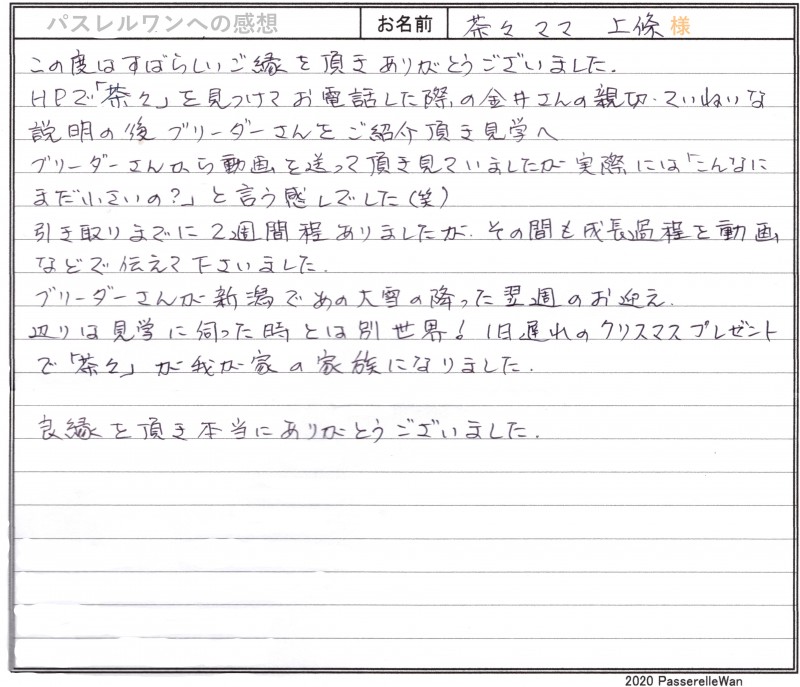 パスレルワンへの感想 お名前 茶々ママ 上條 様
この度はすばらしいご縁を頂きありがとうございました.
HPで「茶々」を見つけてお電話した際の金井さんの親切・ていねいな
説明の後 ブリーダーさんをご紹介頂き見学へ
ブリーダーさんから動画を送って頂き見ていましたが 実際には「こんなに
まだ小さいの?」と言う感じでした(笑)
引き取りまでに2週間程ありましたが. その間も成長過程を動画
などで伝えて下さいました.
ブリーダーさんが新潟であの大雪の降った翌週のお迎え.
辺りは見学に伺った時とは別世界! 1日遅れのクリスマスプレゼント
で「茶々」が我が家の家族になりました.
良縁を頂き本当にありがとうございました.
2020 PasserelleWan